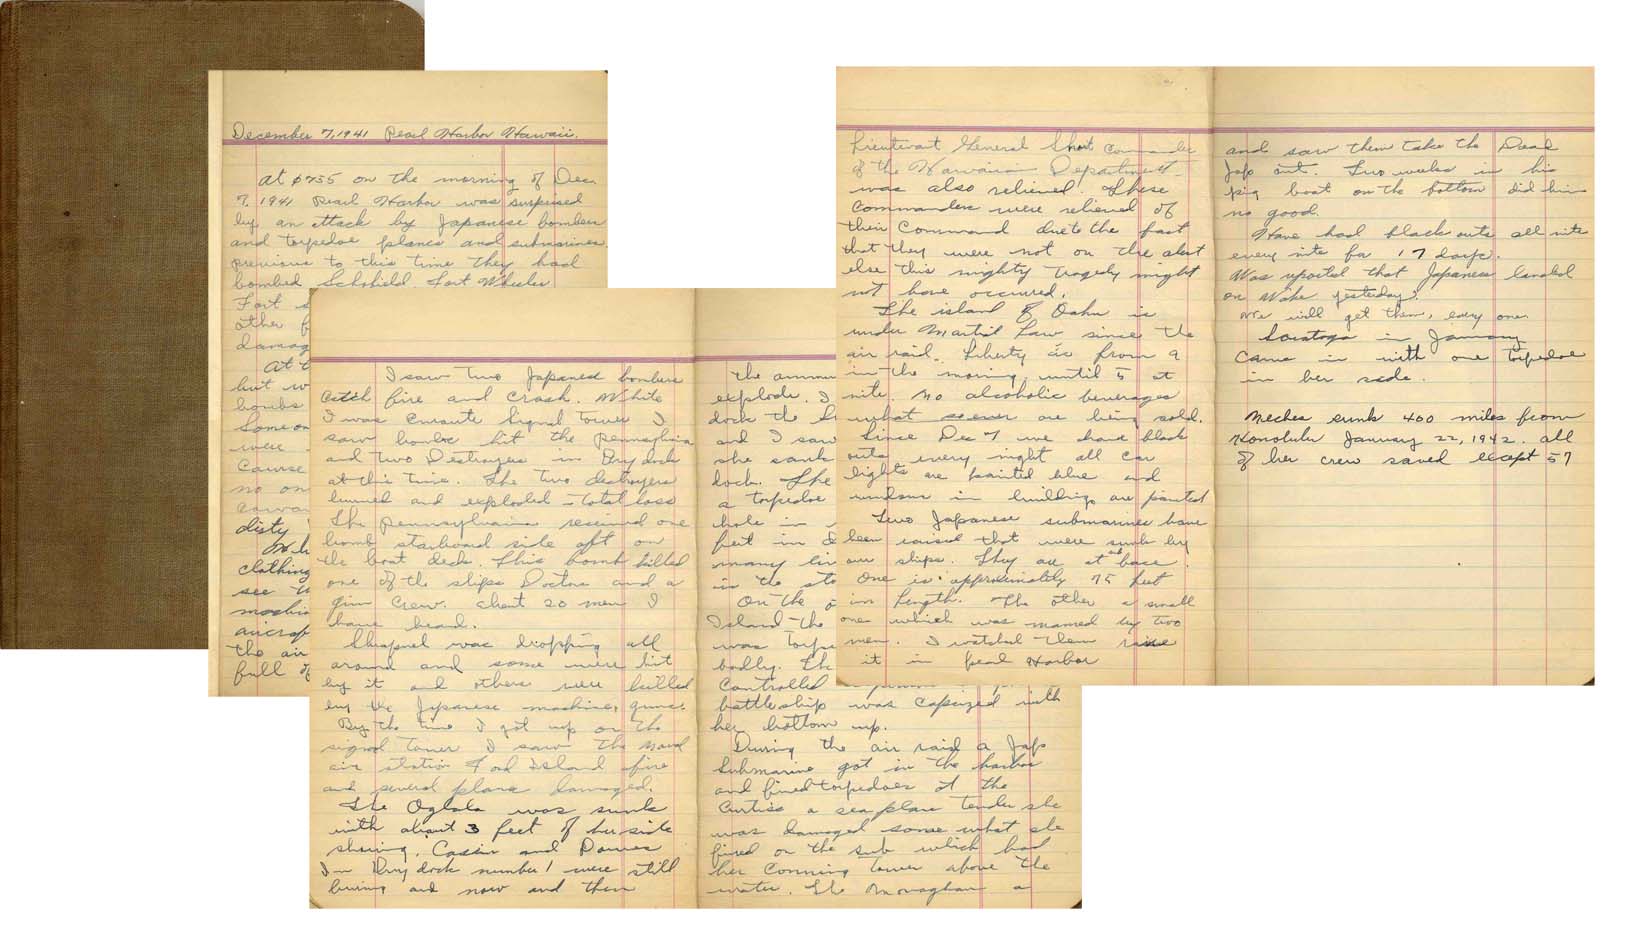 December 7, 1941 Pearl Harbor Hawaii.
At 0755 on the morning of Dec.
7, 1941 Pearl Harbor was surprised
by an attack by Japanese bombers
and torpedoe planes and submarines
previous to this time they had
bombed Schofield. Fort Wheeler
Fort
other
damag
At t
but w
bombs
Some on
were
Cause
no on
disty
clothing
see
machin
aircraf
the air
full of
I saw two Japanese bombers
catch fire and crash. While
I was enroute Signal tower I
saw bombs hit the Pennsylvania
and two Destroyers in Dry dock
at this time. The two destroyers
burned and exploded - total loss
The Pennsylvania received one
bomb starboard side aft on
the boat deck. This bomb killed
one of the ships Doctors and a
gun crew. about 20 men I
have heard.
Shrapnel was dropping all
around and some were hit
by it and others were killed
by the Japanese machine guns.
By the time I got up on the
signal tower I saw the Naval
air station Ford Island afire
and several plans damaged.
The Oglala was sunk
with about 3 feet of her side
showing. Cassin and Downes
In Dry dock number 1 were still
burning and now and then
the ammu
explode. I
dock the
and I saw
she sank
dock. The
a torpedoe
hole in
feet in
many
in the sto
On the o
Island the
was torpe
badly. The
Controlled
battleship was capsized with
her bottom up.
During the air raid a Jap
Submarine got in the harbor
and fired torpedoes at the
Curtiss a sea plane tender she
was damaged some what she
fired on the sub which had
her Conning tower above the
water. The Monaghan a
Lieutenant General Short Commander
of the Hawaiian Department
was also relieved. These
Commanders were relieved of
their Command due to the fact
that they were not on the alert
else this mighty tragedy might
not have occurred.
The island of Oahu is
under Martial Law since the
air raid. Liberty is from 9
in the morning until 5 at
nite. No alcoholic beverages
what so ever are being sold.
Since Dec 7 we have black
outs every night all car
lights are painted blue and
windows in buildings are painted
Two Japanese submarines have
been raised that were sunk by
our ships. They are at sub base.
One is approximately 75 feet
in length. The other a small
one which was manned by two
men. I watched them raise
it in Pearl Harbor
and saw them take the Dead
Jap out. Two weeks in his
pig boat on the bottom did him
no good.
Have had black outs all nite
every nite for 17 days.
Was reported that Japanese landed
on Wake yesterday.
We will get them, every one.
Saratoga in January
Came in with one torpedoe
in her side.
Neches sunk 400 miles from
Honolulu January 22, 1942. all
of her crew saved except 57